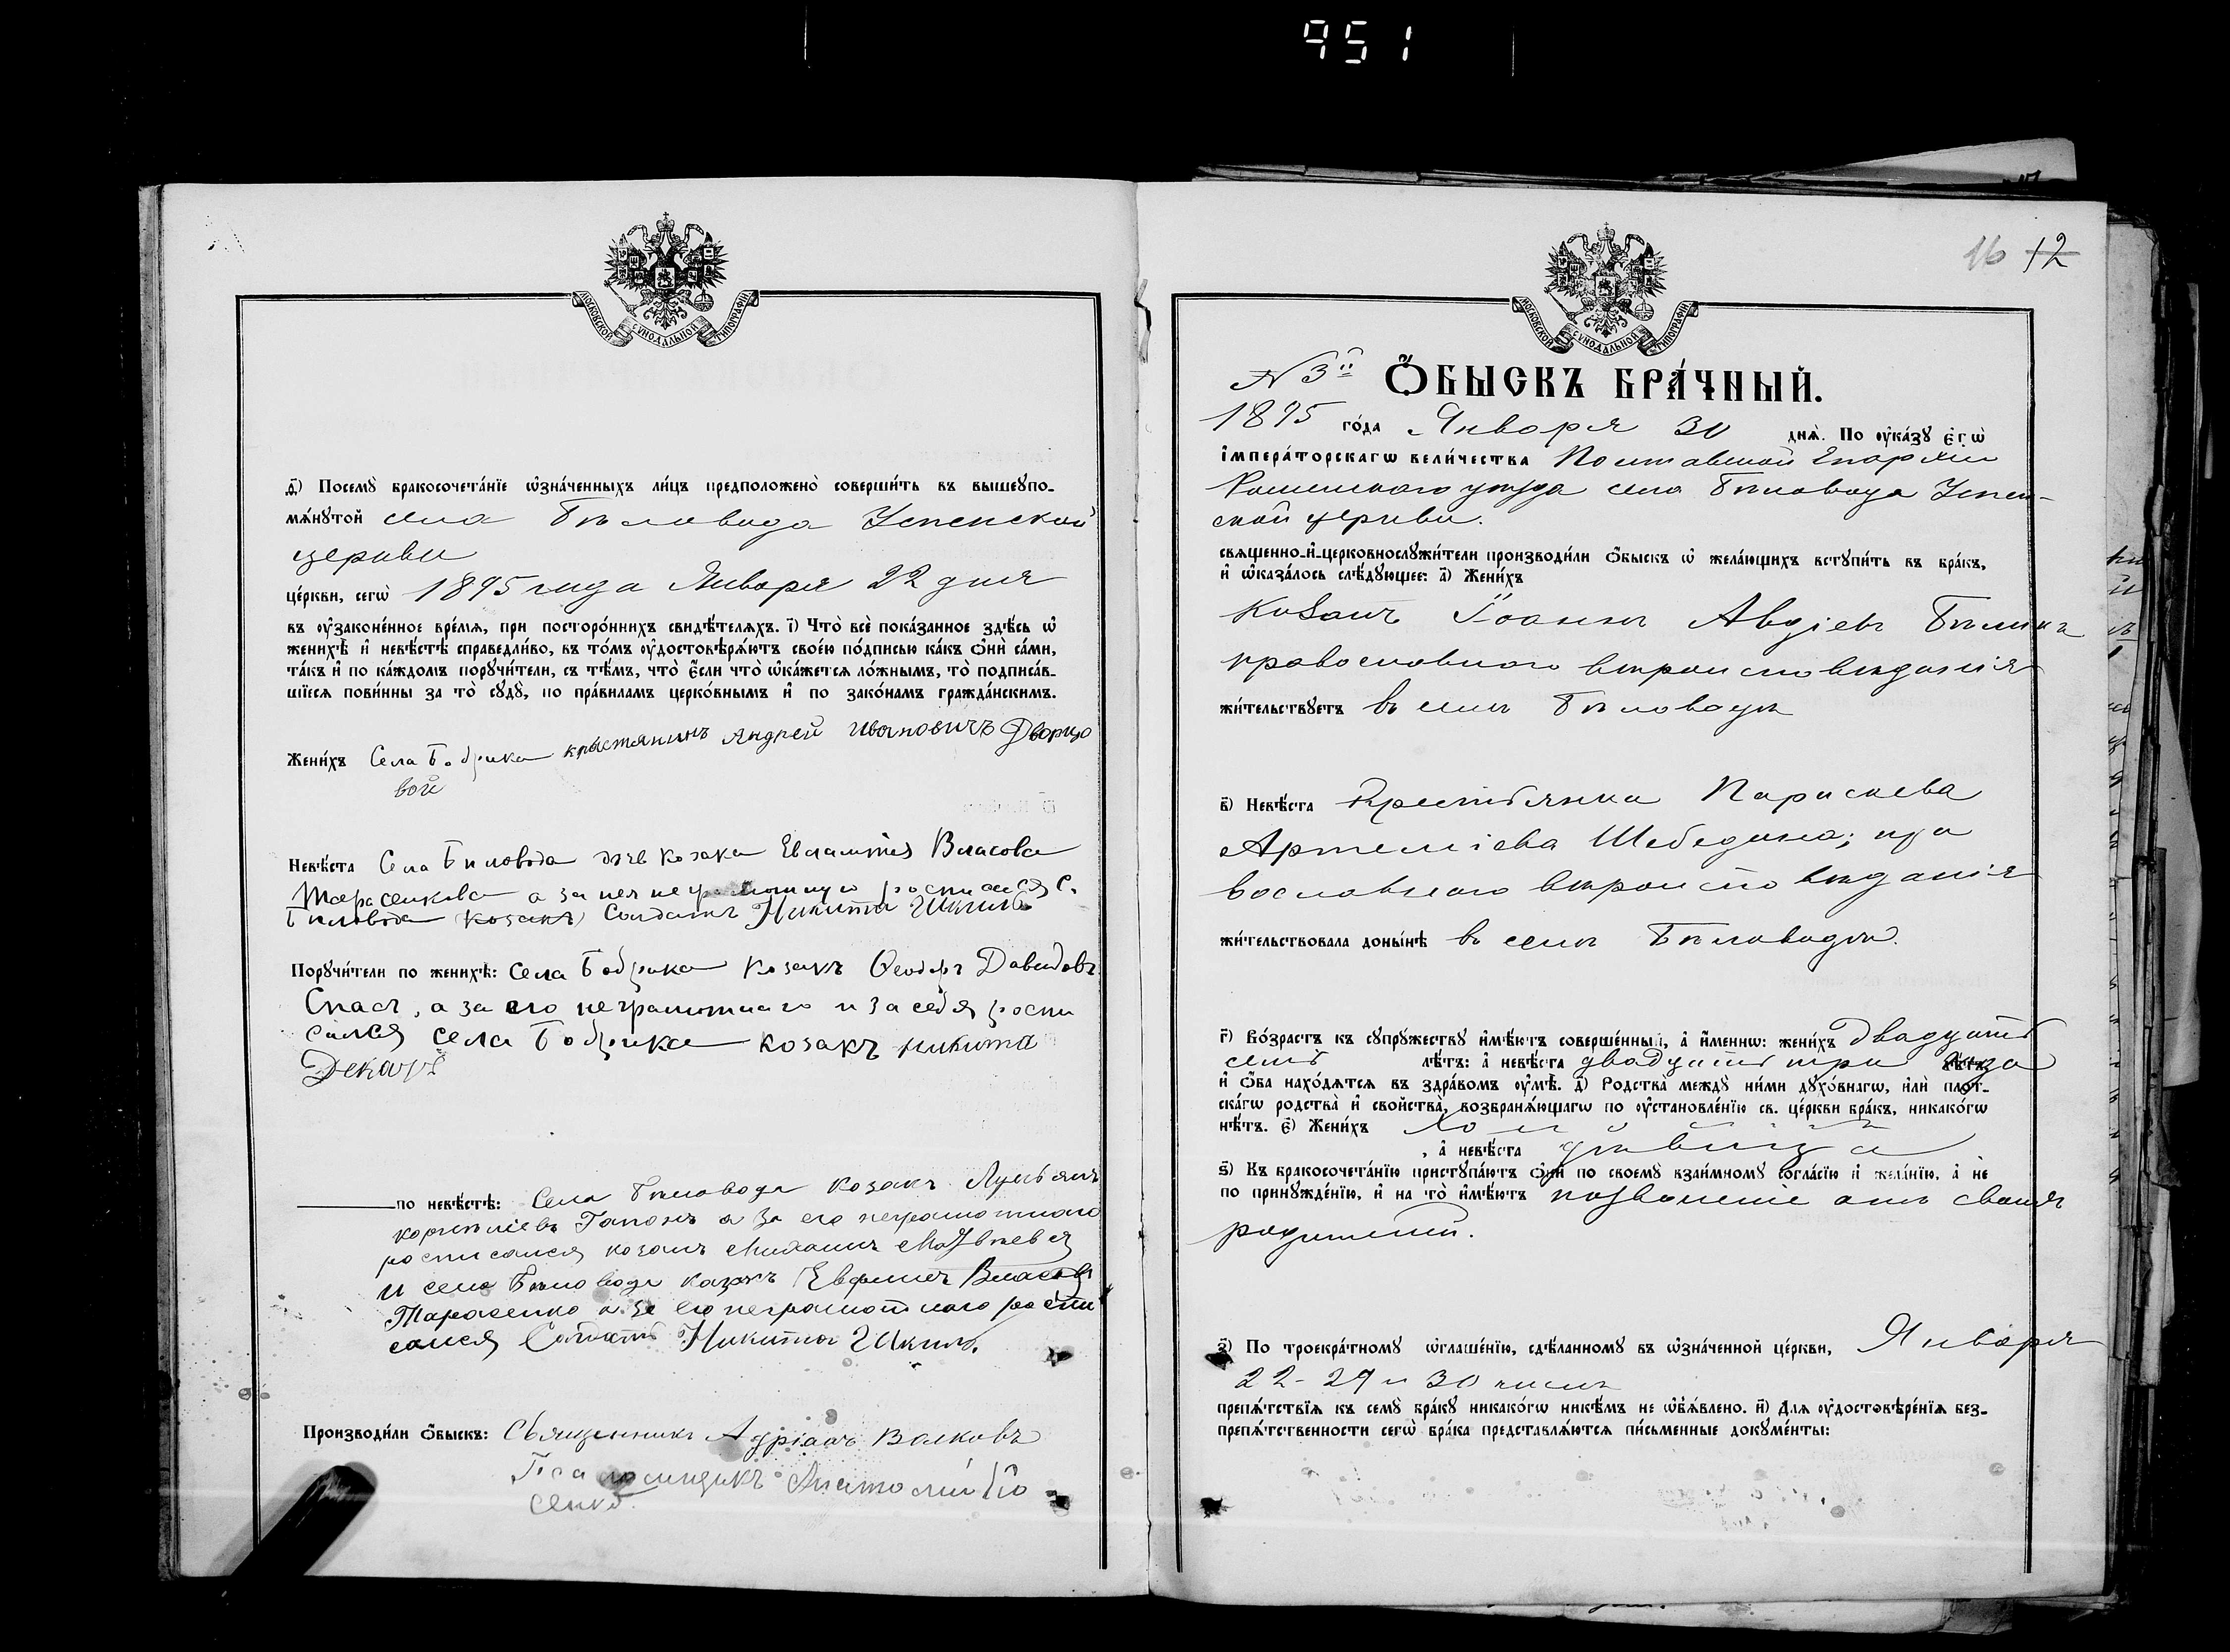 951
МОСКОВСКОЙ СѴНОДАЛЬНОЙ ТИПОГРАФІИ
д҃) Посемꙋ̀ бракосочета́нїе ѡ҆зна́ченныхъ ли́цъ предположено̀ соверши́ть въ вышеꙋпо-
мѧ́нꙋтой села Бѣловода Успенской
церкви
це́ркви, сегѡ̀ 1895 года Января 22 дня
въ ᲂу҆зако́ненное вре́мѧ, при посторо́ннихъ свидѣ́телѧхъ. і҃) Что̀ всѐ пока́занное здѣ́сь ѡ҆
женихѣ̀ и҆ невѣ́стѣ справедли́во, въ то́мъ ᲂу҆достовѣрѧ́ютъ свое́ю по́дписью ка́къ ѻ҆нѝ са́ми,
та́къ и҆ по ка́ждомъ порꙋчи́тели, съ тѣ́мъ, что̀ є҆́сли что̀ ѡ҆ка́жется ло́жнымъ, то̀ подписа́в-
шїесѧ пови́нны за то̀ сꙋдꙋ̀, по пра́виламъ церко́внымъ и҆ по зако́намъ гражда́нскимъ.
Жени́хъ Села Бобрика крыстянинъ Андрей Ивановичъ Дворцо
вой
Невѣ́ста Села Биловода козака Евлампия Власова
Тарасенкова а за нея неграмотную росписался с.
Биловода козакъ Солдатъ Никита
Порꙋчи́тели по женихѣ̀: села Бобрика козакъ Ѳеодоръ Давидовъ
Спасъ, а за его неграмотнаго и за себя роспи
сался села Бобрика козакъ никита
Декарь
по невѣ́стѣ: Села Биловода козакъ Лукьянъ
Корниліевъ Гапонъ а за его неграмотнаго
росписался козакъ
и села Биловода казакъ Евфимъ Власовъ
Тарасенко а за его неграмотного роспи
сался Солдатъ Никита
Производи́ли ѻ҆́быскъ: Священникъ Адріанъ Волковъ
Псаломщикъ Анатолій
сенко.
16 12
МОСКОВСКОЙ СѴНОДАЛЬНОЙ ТИПОГРАФІИ
N 3й Ѻ҆́БЫСКЪ БРА́ЧНЫЙ.
1895 го́да Января 30 днѧ̀. По ᲂу҆ка́зꙋ є҆гѡ̀
і҆мпера́торскагѡ вели́чества Полтавской Епархіи
Роменскаго уѣзда села Бѣловода Успен-
ской церкви.
свѧщенно-и҆-церковнослꙋжи́тели производи́ли ѻ҆́быскъ ѡ҆ жела́ющихъ встꙋпи́ть въ бра́къ,
и҆ ѡ҆каза́лось слѣ́дꙋющее: а҃) Жени́хъ
Козакъ Іоаннъ Авдіевъ Бѣликъ
православнаго вѣроисповѣданія
жи́тельствꙋетъ въ селѣ Бѣловодѣ
в҃) Невѣ́ста Крестьянка Параскева
Артеміева Шебедина; пра
вославнаго вѣроисповѣданія
жи́тельствовала доны́нѣ въ селѣ Бѣловодѣ.
г҃) Во́зрастъ къ сꙋпрꙋ́жествꙋ и҆мѣ́ютъ соверше́нный, а҆ и҆́меннѡ: жени́хъ двадцать
семь лѣ́тъ: а҆ невѣ́ста двадцать три года
и҆ ѻ҆́ба нахо́дѧтсѧ въ здра́вомъ ᲂу҆мѣ̀. д҃) Родства̀ междꙋ̀ ни́ми дꙋхо́внагѡ, и҆лѝ пло́т-
скагѡ родства̀ и҆ свойства̀, возбранѧ́ющагѡ по ᲂу҆становле́нїю св. це́ркви бра́къ, никако́гѡ
нѣ́тъ. є҃) Жени́хъ холостъ
, а҆ невѣ́ста дѣвица
ѕ҃) Къ бракосочета́нїю пристꙋпа́ютъ ѻ҆нѝ по своемꙋ̀ взаи́мномꙋ согла́сїю и҆ жела́нїю, а҆ не
по принꙋжде́нїю, и҆ на то̀ и҆мѣ́ютъ позволеніе отъ своихъ
родителей.
з҃) По троекра́тномꙋ ѡ҆глаше́нїю, сдѣ́ланномꙋ въ ѡ҆зна́ченной це́ркви, Января
22 - 29 и 30 числъ
препѧ́тствїѧ къ семꙋ̀ бра́кꙋ никако́гѡ никѣ́мъ не ѡ҆бѧ́влено. и҃) Длѧ ᲂу҆достовѣре́нїѧ без-
препѧ́тственности сегѡ̀ бра́ка представлѧ́ютсѧ пи́сьменные докꙋме́нты: